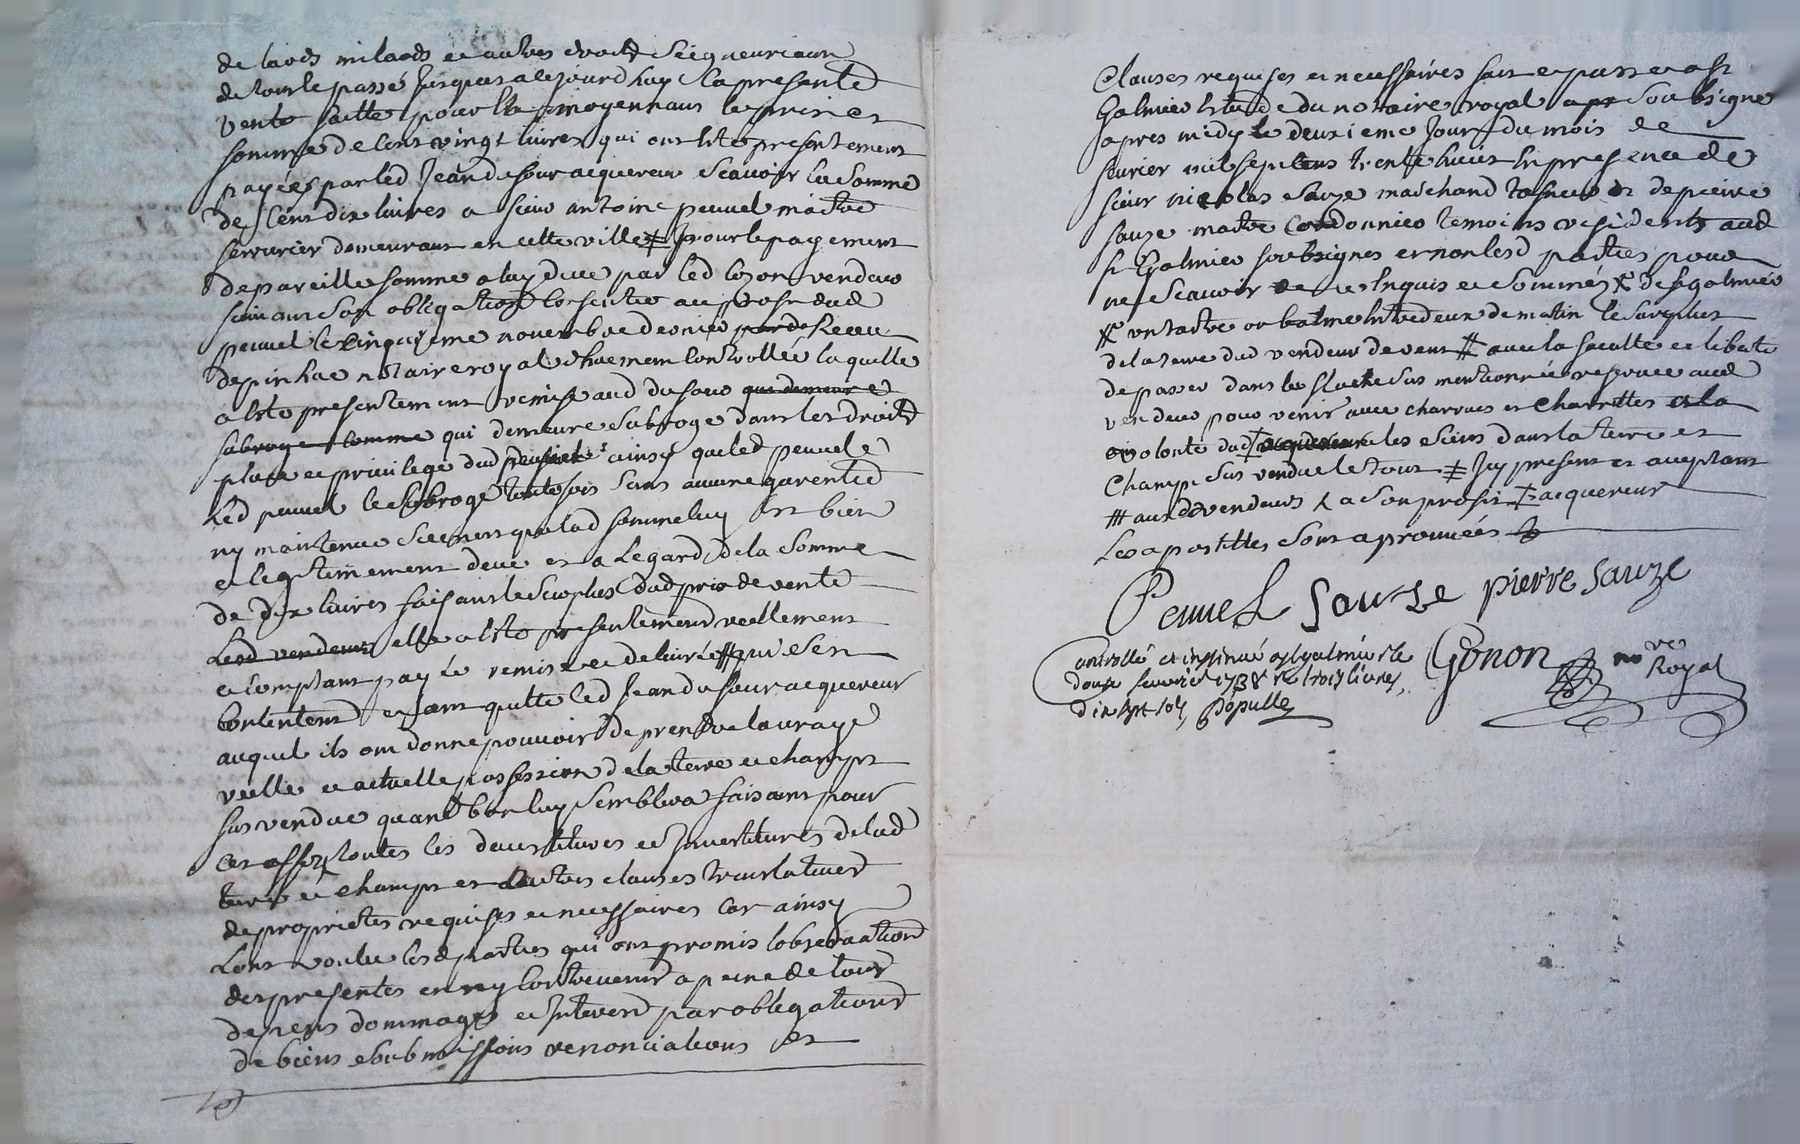 de laods milaods et autres droits Seigneuriaux
de tout le passé Jusques a ce Jourdhuy la presente
vente faitte pour & moyennant le prix et
somme de Cent vingt livres qui ont été presentement
payées par led Jean dufour acquereur Scavoir la Somme
de Cent dix livres a sieur antoine peuvel maitre
serrurier demeurant en cette ville pour le payement
de pareille somme a luy due par led vendeur
suivant Son obligation Consentie au profit dud
peuvel le cinquième novembre dernier Receu
notaire royal Controllée laquelle
a été presentement remise aud dufour qui demeure
Sabroge Comme qui demeure Sabroge dans les droits
place et privilege dud ainsy que led peuvel
Led peuvel le Subroge toutefois sans aucune garentie
ny maintenue Seulement que lad somme luy est bien
et legitimement deue et a Legard de la Somme
de dix livres faisant le Surplus dud prix de vente
Lesd vendeurs elle a été presentement reellement
et Comptant payée remise et delivrée qui Sen
Contentent et quitte led Jean dufour acquereur
auquel ils ont donne pouvoir de prendre la vraye
reelle et actuelle possession de la terre et champs
sus vendue quand bon luy Semblera faisant pour
cet effet toutes les devestitures et Investitures de lad
terre et champs et autres clauses translatives
de proprietes requises et necessaires Car ainsy
Lont voulu lesd parties qui ont promis lobservation
des presentes et ny Contrevenir a peine de tous
depens dommages et Interets par obligations
de biens Submissions renonciations et
Clauses requises et necessaires fait et passé a St
Galmier Etude du notaire royal Soubsigne
apres midy le deuxieme Jour du mois de
fevrier mil sept cens trente huit En presence de
sieur nicolas Sauze marchand et de pierre
sauze maitre Cordonnier temoins residents aud
St Galmier soubsignes et non lesd parties pour
ne Scavoir de ce Enquis et Sommés de St galmier
de matin le Surplus
de la terre dud vendeur de vent avec la faculte et liberte
de passer dans le Sus mentionnée reservée aud
vendeur pour venir avec charrues et Charrettes
volonte dud les Siens dans la terre et
Champ Sus vendue le tout Icy present et acceptant
auxd vendeurs a Son profit acquereur
Les apostilles Sont aprouvées
Peuvel Sauze pierre Sauze
Gonon nore Royal
Controllé et insinué a St galmier le
douze fevrier 1738 trois livres
dix sept sols Populle